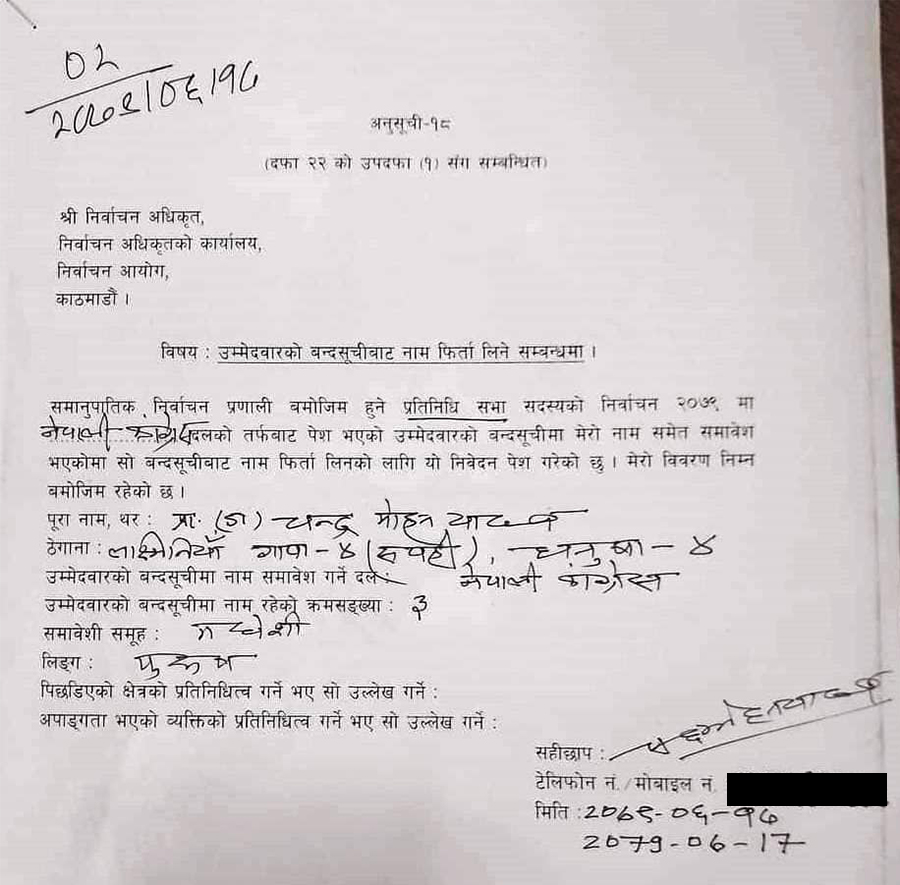 ०२
२०७९।०६।१७
अनुसूची-१८
(दफा २२ को उपदफा (१) संग सम्बन्धित)
श्री निर्वाचन अधिकृत,
निर्वाचन अधिकृतको कार्यालय,
निर्वाचन आयोग,
काठमाडौं ।
विषय : उम्मेदवारको बन्दसूचीबाट नाम फिर्ता लिने सम्बन्धमा ।
समानुपातिक निर्वाचन प्रणाली बमोजिम हुने प्रतिनिधि सभा सदस्यको निर्वाचन २०७९ मा
नेपाली काग्रेस दलको तर्फबाट पेश भएको उम्मेदवारको बन्दसूचीमा मेरो नाम समेत समावेश
भएकोमा सो बन्दसूचीबाट नाम फिर्ता लिनको लागि यो निवेदन पेश गरेको छु । मेरो विवरण निम्न
बमोजिम रहेको छ ।
पूरा नाम, थर : प्रा. (डा) चन्द्र मोहन यादव
ठेगाना : लक्ष्मिनियाँ गापा - ४ (सपही), धनुषा - ४
उम्मेदवारको बन्दसूचीमा नाम समावेश गर्ने दल : नेपाली कांग्रेस
उम्मेदवारको बन्दसूचीमा नाम रहेको क्रमसङ्ख्या : ३
समावेशी समूह : मधेशी
लिङ्ग : पुरूष
पिछडिएको क्षेत्रको प्रतिनिधित्व गर्ने भए सो उल्लेख गर्ने :
अपाङ्गता भएको व्यक्तिको प्रतिनिधित्व गर्ने भए सो उल्लेख गर्ने :
सहीछाप :
टेलिफोन नं./मोबाइल नं.
मिति : २०७९-०६-१७
2079-06-17